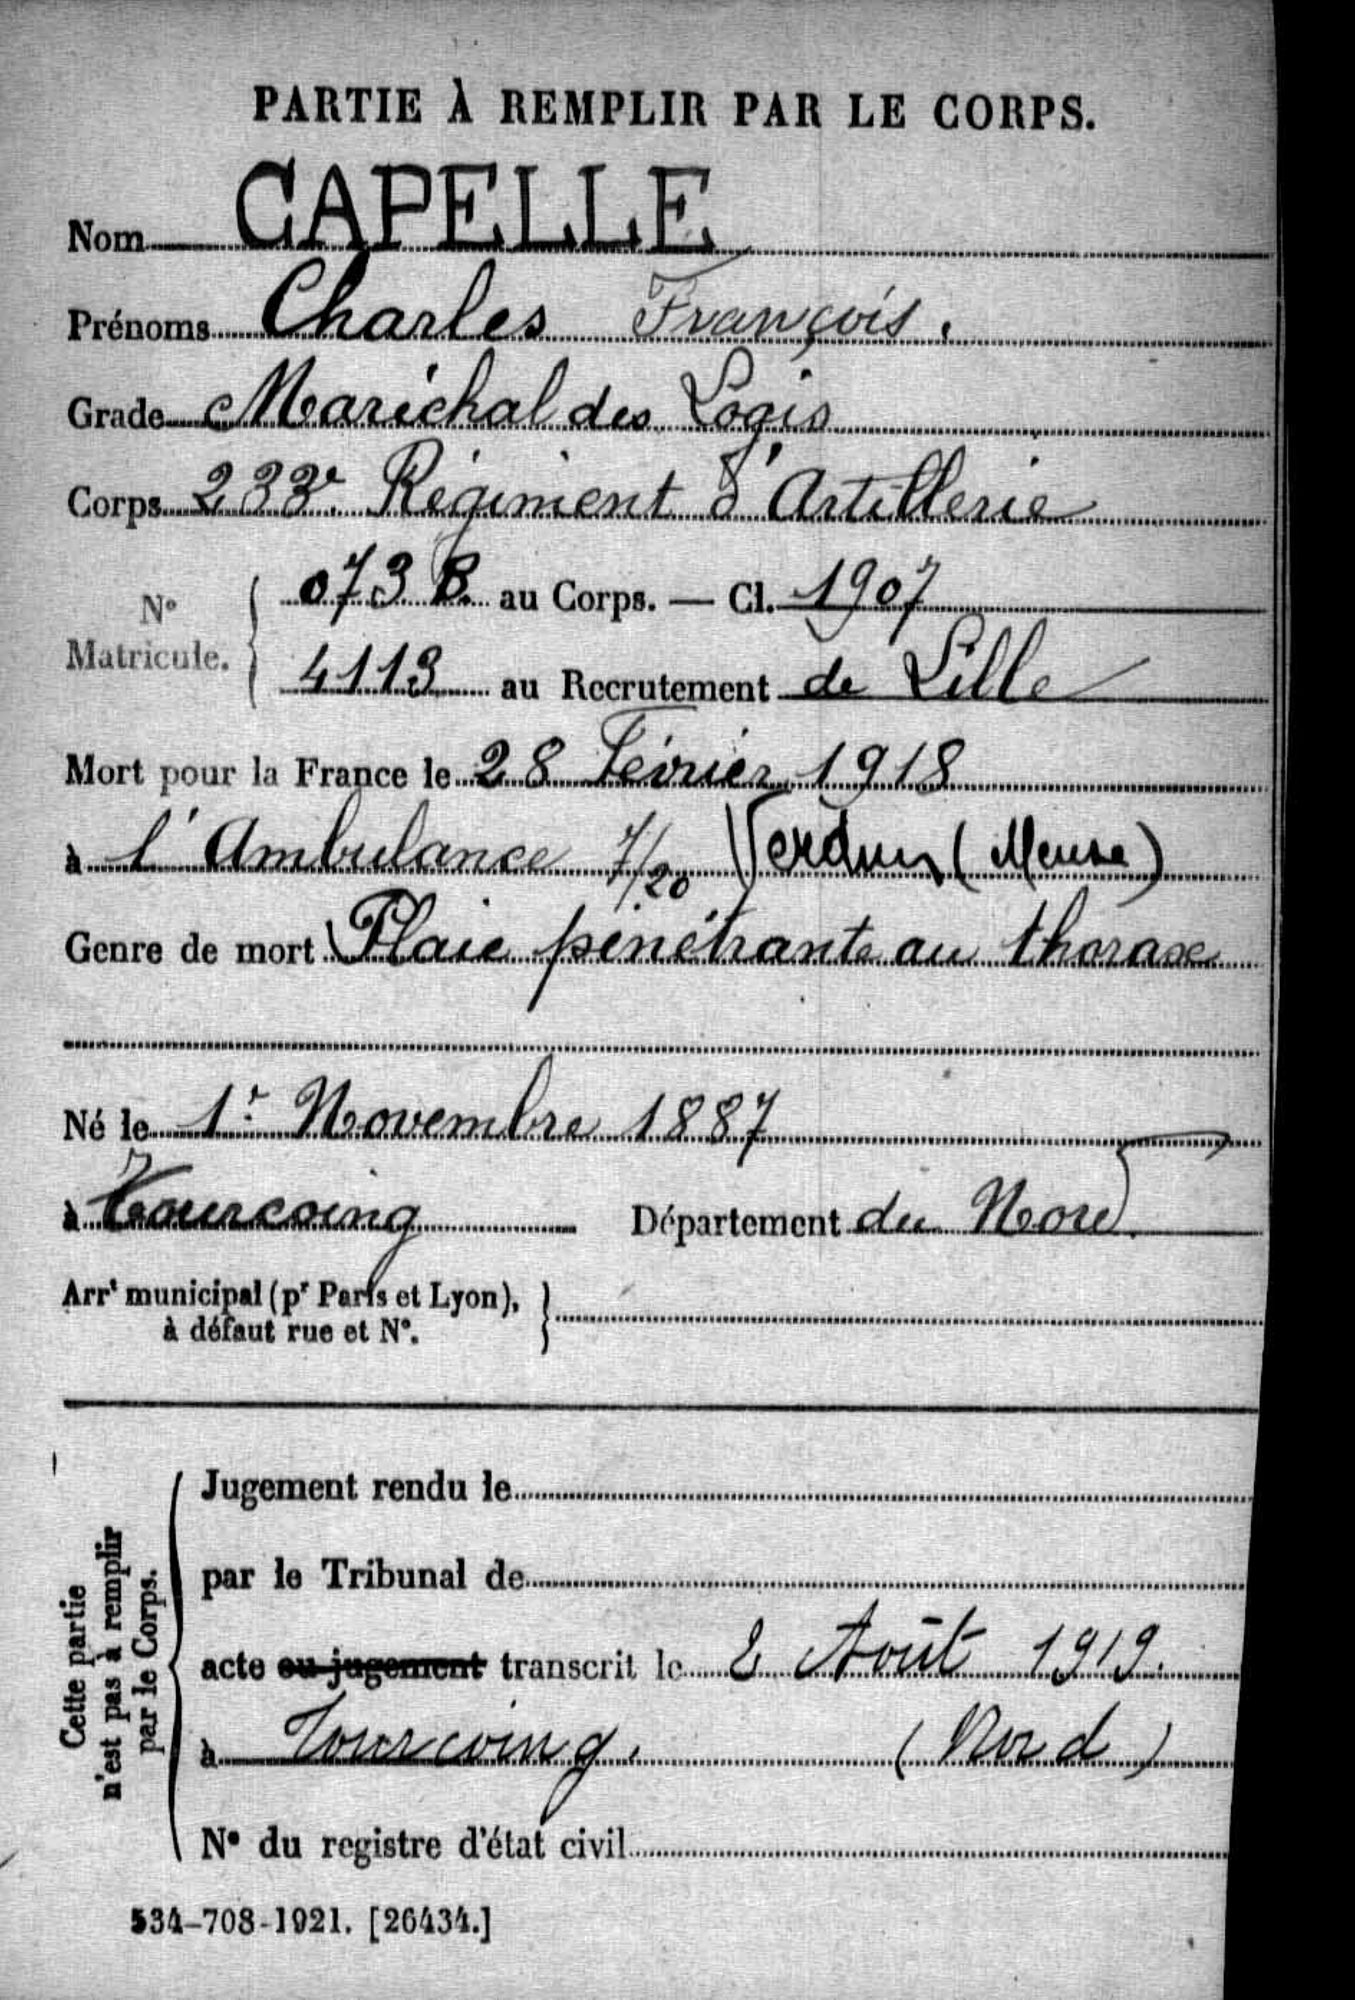 PARTIE À REMPLIR PAR LE CORPS.
Nom CAPELLE
Prénoms Charles François.
Grade Maréchal des Logis
Corps 233e Régiment d'Artillerie
N° Matricule.
073 B. au Corps. — Cl. 1907
4113 au Recrutement de Lille
Mort pour la France le 28 Février 1918
à l'Ambulance 7/20 Verdun (Meuse)
Genre de mort Plaie pénétrante au thorax
Né le 1r Novembre 1887
à Tourcoing Département du Nord
Arrt municipal (pr Paris et Lyon),
à défaut rue et N°.
Cette partie
n'est pas à remplir
par le Corps.
Jugement rendu le
par le Tribunal de
acte ou jugement transcrit le 2 Août 1919.
à Tourcoing. (Nord)
N° du registre d'état civil
534-708-1921. [26434.]